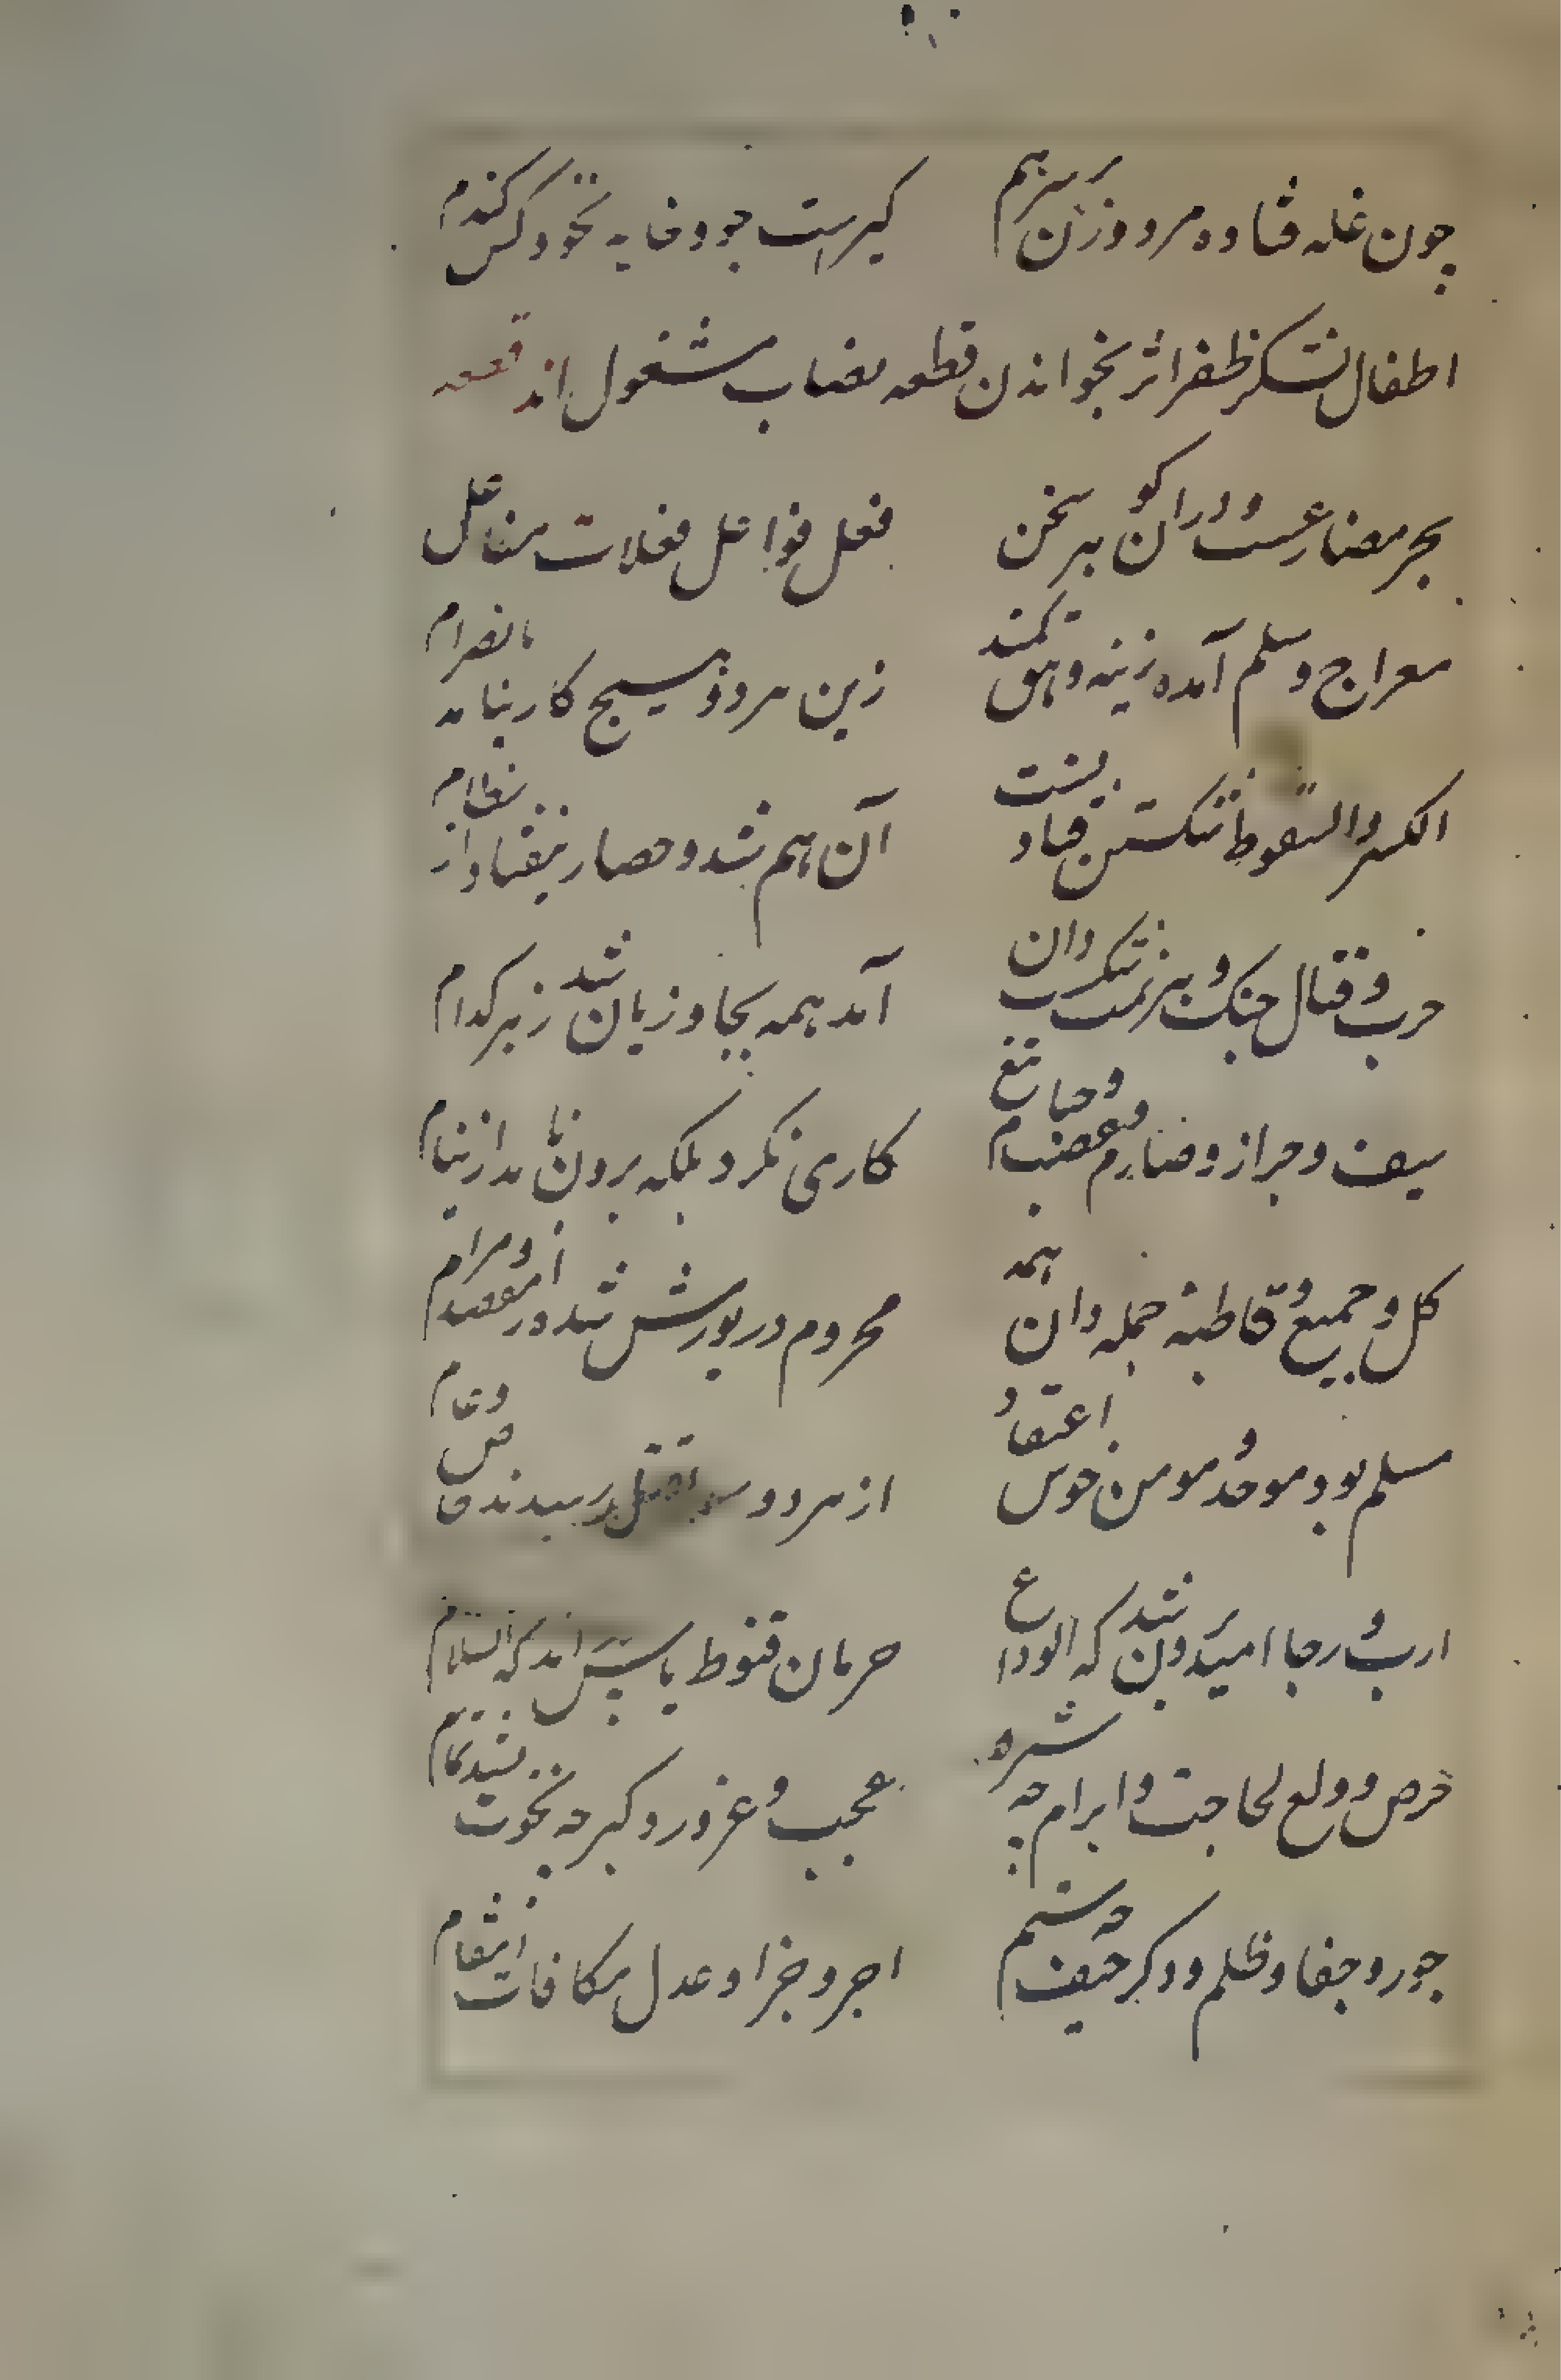 چون غله فتاده مرد و زن بر سر هم
گیراست جو و فایه نخود کس گندم
اطفال لشکر ظفر اثر بخواندن قطعه نصاب مشغول اند قطعه
بحر مضارعست ودرا ن کو بر سخن
فعل فواعل فعلات مفاعل
معراج و سلم آمده زینه وهق کمند
زین هر دو هیچ کار نیامد بانصرام
الکسر والسقوط شکستن فتاد نیست
آن هم نشد و حصار نیفتاد از نظام
حرب و قتال جنک و هزیمت شکست دان
آمد همه بجا و زیان شد ز هر کدام
سیف و جراز و صارم و عضب و حسام تیغ
کاری نکرد بلکه برون نامد از نیام
کل و جمیع و قاطبه جمله دان همه
محروم در یورش شده از مقصد و مرام
مسلم بود موحد و مومن خوس اعتقاد
از هر دو سو بقتل رسیدند خاص و عام
ارب و رجا امید و برون شد که الوداع
حرمان قنوط یاس پس آمد که السلام
حرص و ولع لحاجت و ابرام چه شره
عجب و غرور و کبر چه نخوت نشد تمام
جور و جفا و ظلم و دکر حیف چه ستم
اجر و جزا و عدل مکافات انتقام